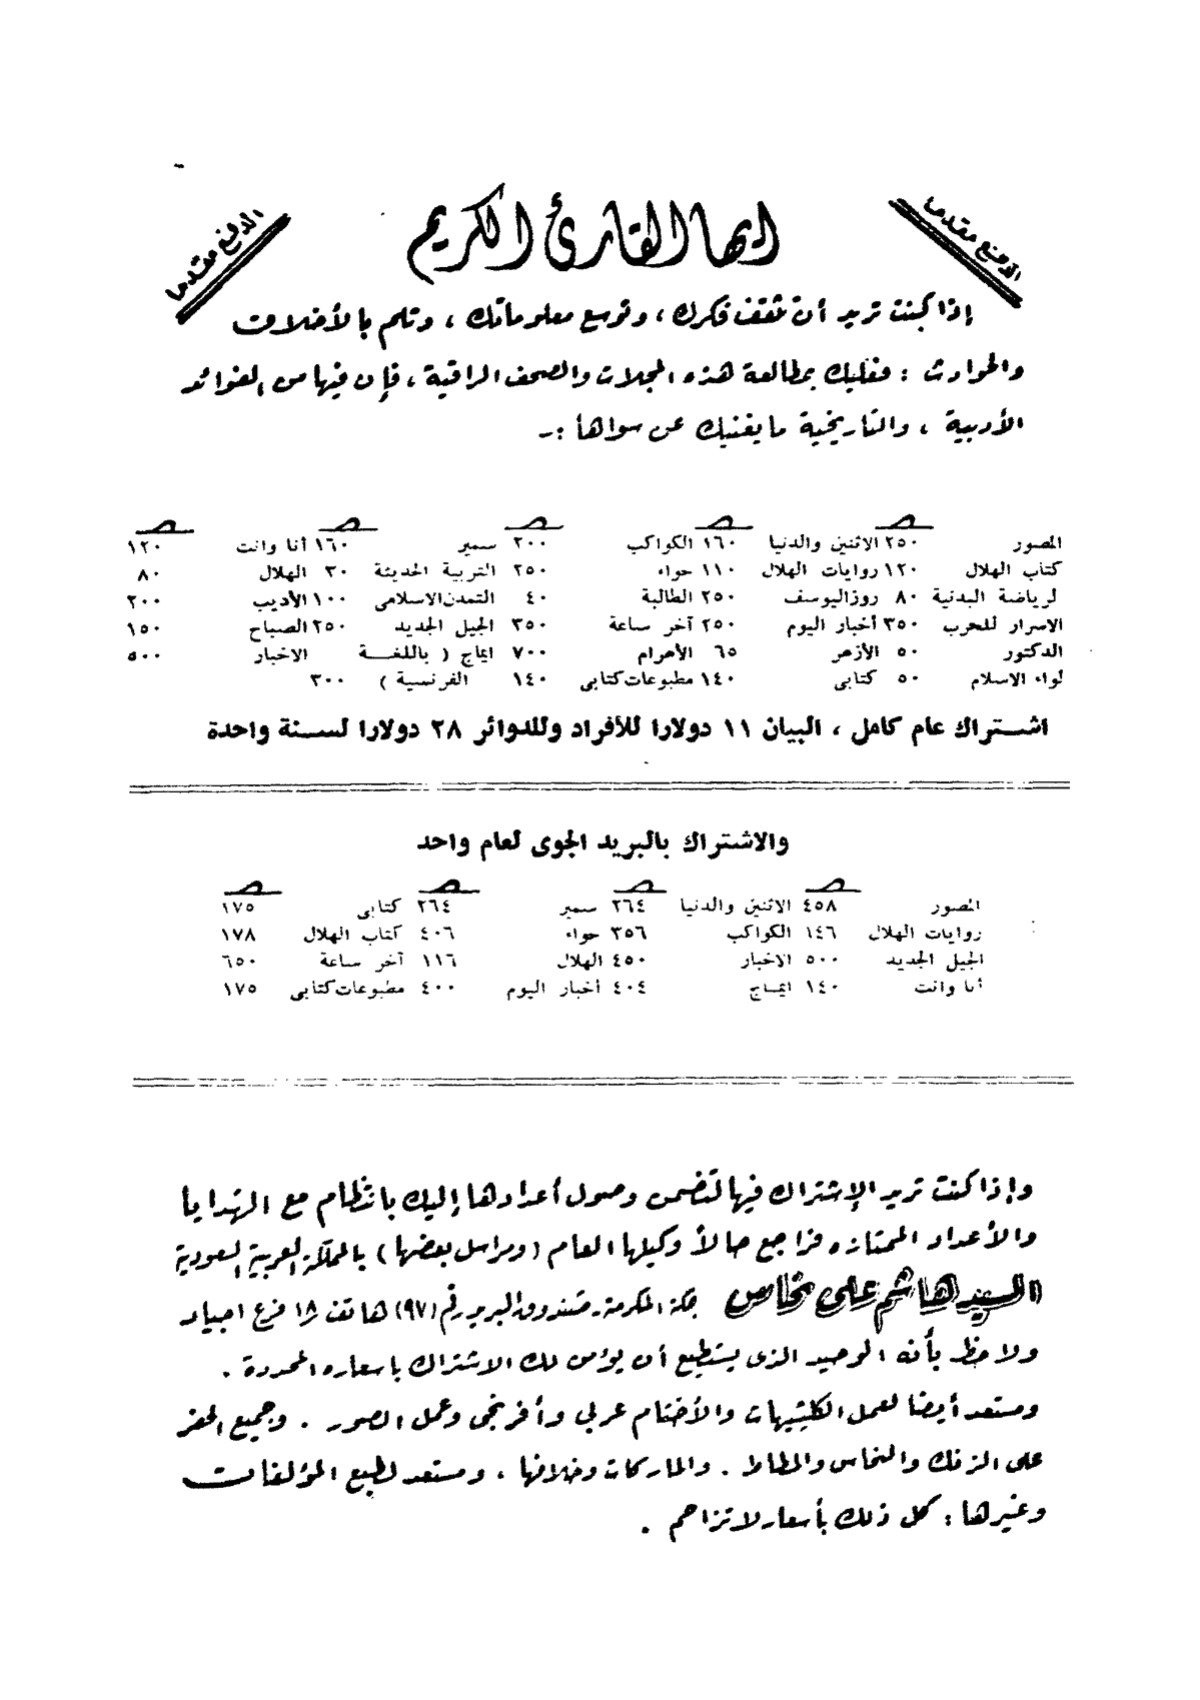 الدفع مقدما
ايها القارئ الكريم
الدفع مقدما
إذا كنت تريد أن تثقف فكرك ، وتوسع معلوماتك ، وتلم بالأخلاق
والحوادث : فعليك بمطالعة هذه المجلات والصحف الراقية ، فإن فيها من الفوائد
الأدبية ، والتاريخية ما يغنيك عن سواها :ـ
المصور ٢٥٠ الاثنين والدنيا ١٦٠ الكواكب ٢٠٠ سمير ١٦٠ أنا وانت ١٢٠
كتاب الهلال ١٢٠ روايات الهلال ١١٠ حواء ٢٥٠ التربية الحديثة ٣٠ الهلال ٨٠
لرياضة البدنية ٨٠ روز اليوسف ٢٥٠ الطالبة ٤٠ التمدن الاسلامى ١٠٠ الأديب ٢٠٠
الاسرار للحرب ٣٥٠ أخبار اليوم ٢٥٠ آخر ساعة ٣٥٠ الجيل الجديد ٢٥٠ الصباح ١٥٠
الدكتور ٥٠ الأزهر ٦٥ الأهرام ٧٠٠ ايماج ( باللغة الاخبار ٥٠٠
لواء الاسلام ٥٠ كتابى ١٤٠ مطبوعات كتابى ١٤٠ الفرنسية ) ٣٠٠
اشتراك عام كامل ، البيان ١١ دولارا للأفراد وللدوائر ٢٨ دولارا لسنة واحدة
والاشتراك بالبريد الجوى لعام واحد
المصور ٤٥٨ الاثنين والدنيا ٢٦٤ سمير ٢٦٤ كتابى ١٧٥
روايات الهلال ١٤٦ الكواكب ٣٥٦ حواء ٤٠٦ كتاب الهلال ١٧٨
الجيل الجديد ٥٠٠ الاخبار ٤٥٠ الهلال ١١٦ آخر ساعة ٦٥٠
أنا وانت ١٤٠ ايماج ٤٠٤ أخبار اليوم ٤٠٠ مطبوعات كتابى ١٧٥
وإذا كنت تريد الإشتراك فيها لتضمن وصول أعدادها إليك بانتظام مع الهدايا
والأعداد الممتازه فراجع حالاً وكيلها العام ( ومراسل بعضها ) بالمملكة العربية السعودية
السيد هاشم علي نحاس بمكة المكرمة - صندوق البريد رقم (٩٧) هاتف ١٨ فرع اجياد
ولاحظ بأنه الوحيد الذى يستطيع أن يؤمن لك الاشتراك باسعاره المحددة .
ومستعد أيضا لعمل الكليشيهات والأختام عربي وأفرنجى وعمل الصور . وجميع الحفر
على الزنك والنحاس والمطاط . والماركات وخلافها ، ومستعد لطبع المؤلفات
وغيرها : كل ذلك بأسعار لا تزاحم .